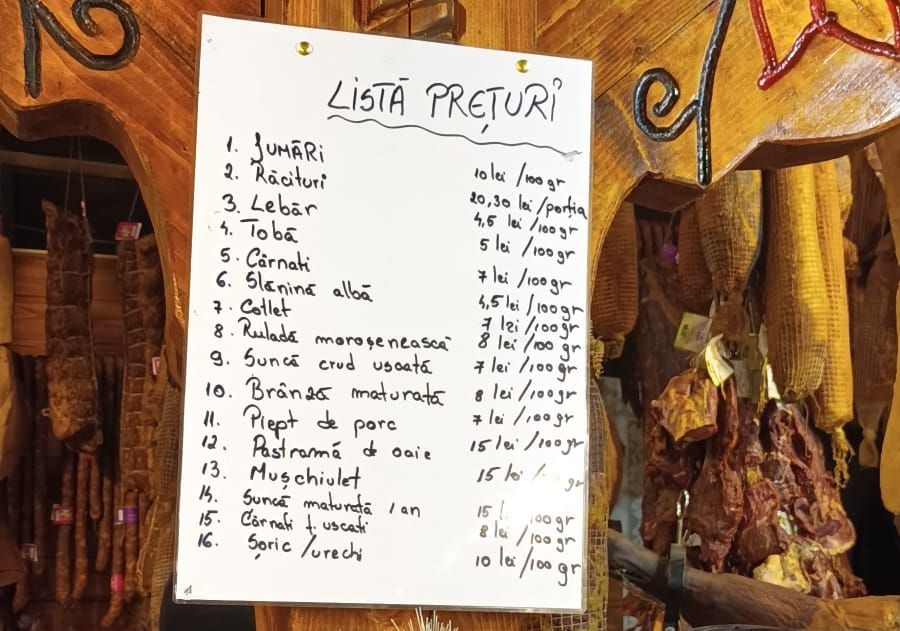 LISTĂ PREȚURI
1. JUMĂRI 10 lei /100 gr
2. Răcituri 20,30 lei /porția
3. Lebăr 4,5 lei /100 gr
4. Tobă 5 lei /100 gr
5. Cârnati 7 lei /100 gr
6. Slănină albă 4,5 lei /100 gr
7. Cotlet 7 lei /100 gr
8. Ruladă moroșenească 8 lei /100 gr
9. Șuncă crud uscată 7 lei /100 gr
10. Brânză maturată 8 lei /100 gr
11. Piept de porc 7 lei /100 gr
12. Pastramă d oaie 15 lei /100 gr
13. Mușchiuleț 15 gr
14. Șuncă maturată 1 an 15 100 gr
15. Cârnati f. uscati 8 lei /100 gr
16. Șoric /urechi 10 lei /100 gr